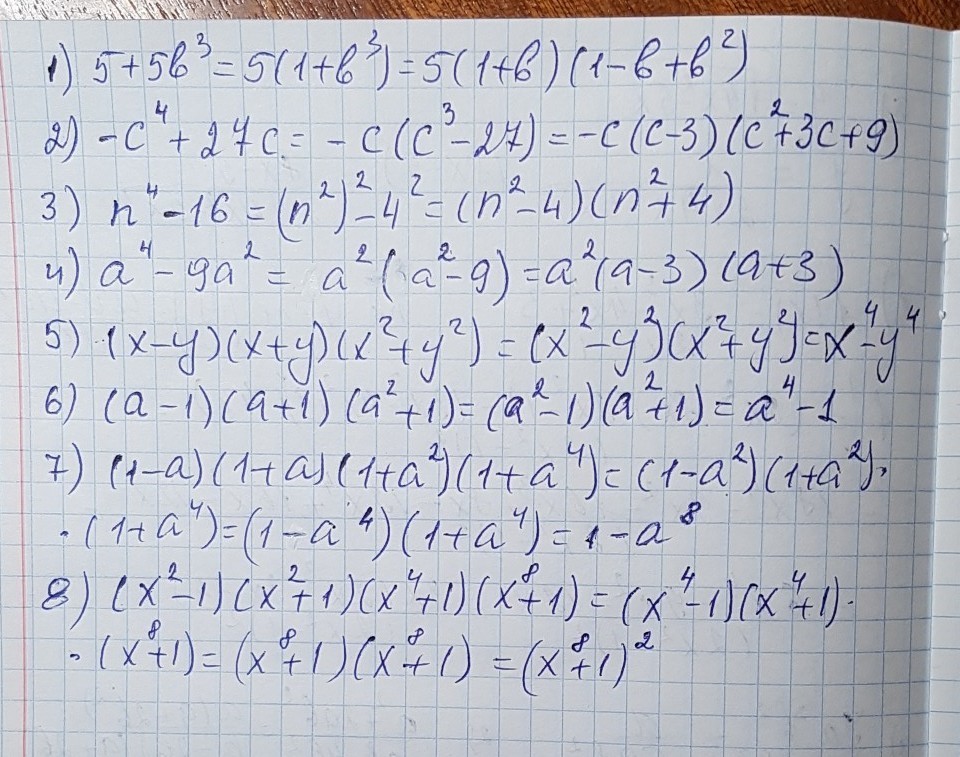 1) 5+5в³=5(1+в³)=5(1+в)(1-в+в²)
2) -c⁴+27c=-c(c³-27)=-c(c-3)(c²+3c+9)
3) n⁴-16=(n²)²-4²=(n²-4)(n²+4)
4) a⁴-9a²=a²(a²-9)=a²(a-3)(a+3)
5) (x-y)(x+y)(x²+y²)=(x²-y²)(x²+y²)=x⁴-y⁴
6) (a-1)(a+1)(a²+1)=(a²-1)(a²+1)=a⁴-1
7) (1-a)(1+a)(1+a²)(1+a⁴)=(1-a²)(1+a²)·
·(1+a⁴)=(1-a⁴)(1+a⁴)=1-a⁸
8) (x²-1)(x²+1)(x⁴+1)(x⁸+1)=(x⁴-1)(x⁴+1)·
·(x⁸+1)=(x⁸+1)(x⁸+1)=(x⁸+1)²